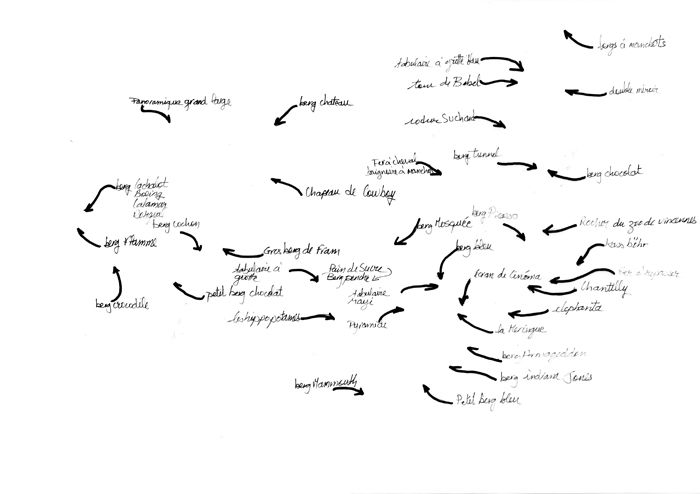 bergs à manchots
tabulaire à grotte bleu
tour de Babel
double miroir
Panoramique grand large
berg château
rocher Suchard
berg tunnel
Fer à cheval
baignoire à manchots
berg chocolat
berg Cachalot
Boeing
Calamar
berg cochon
Chapeau de Cowboy
berg Picasso
berg Mosquée
Rocher du zoo de vincennes
berg Flamme
Gros berg de Fram
berg bleu
tabulaire à
grotte
Pain de Sucre
Berg penché
Ecran de Cinéma
Chantilly
berg crocodile
petit berg chocolat
tabulaire
rayé
elephanta
les hyppopotames
Pyramide
la Meringue
berg Armageddon
berg Mammouth
berg indiana Jones
Petit berg bleu